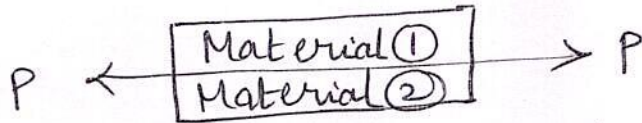 Material ①
P P
Material ②